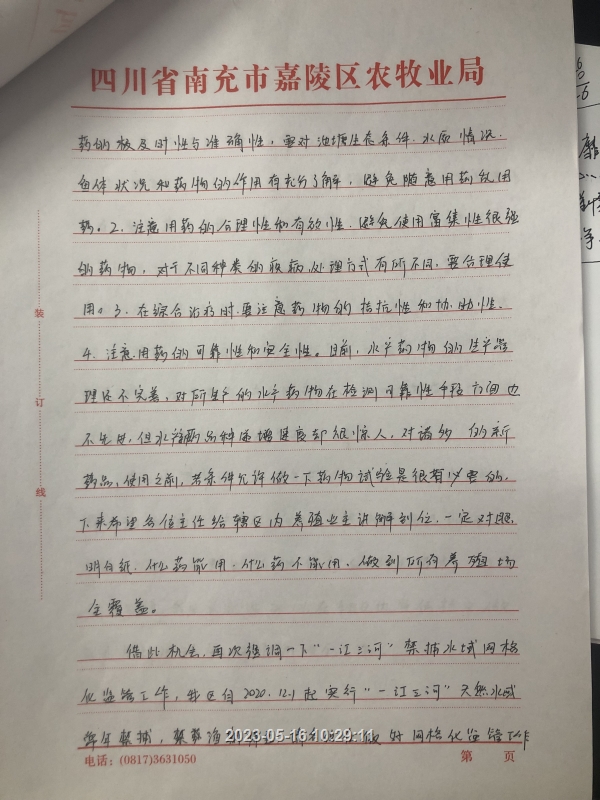 四川省南充市嘉陵区农牧业局
药的极及时性与准确性，要对池塘生态条件、水质情况、
鱼体状况和药物的作用有充分了解，避免随意用药乱用
药。2、注意用药的合理性和有效性，避免使用富集性很强
的药物，对于不同种类的疾病，处理方式有所不同，要合理使
用。3、在综合治疗时要注意药物的拮抗性和协助性、
4、注意用药的可靠性和安全性。目前，水产药物的生产管
理还不完善，对所生产的水产药物在检测可靠性手段方面也
不先进，但水产药品种递增速度却很惊人，对诸多的新
药品，使用之前，若条件允许做一下药物试验是很有必要的，
下来希望各位主任给辖区内养殖业主讲解到位，一定对照
明白纸，什么药能用，什么药不能用，做到所有养殖场
全覆盖。
借此机会，再次强调一下“一江三河”禁捕水域网格
化监管工作，我区自2020.12.1起实行“一江三河”天然水域
禁捕，做好网格化监管工作
装
订
线
电话：(0817)3631050
第 页
2023-05-16 10:29:11